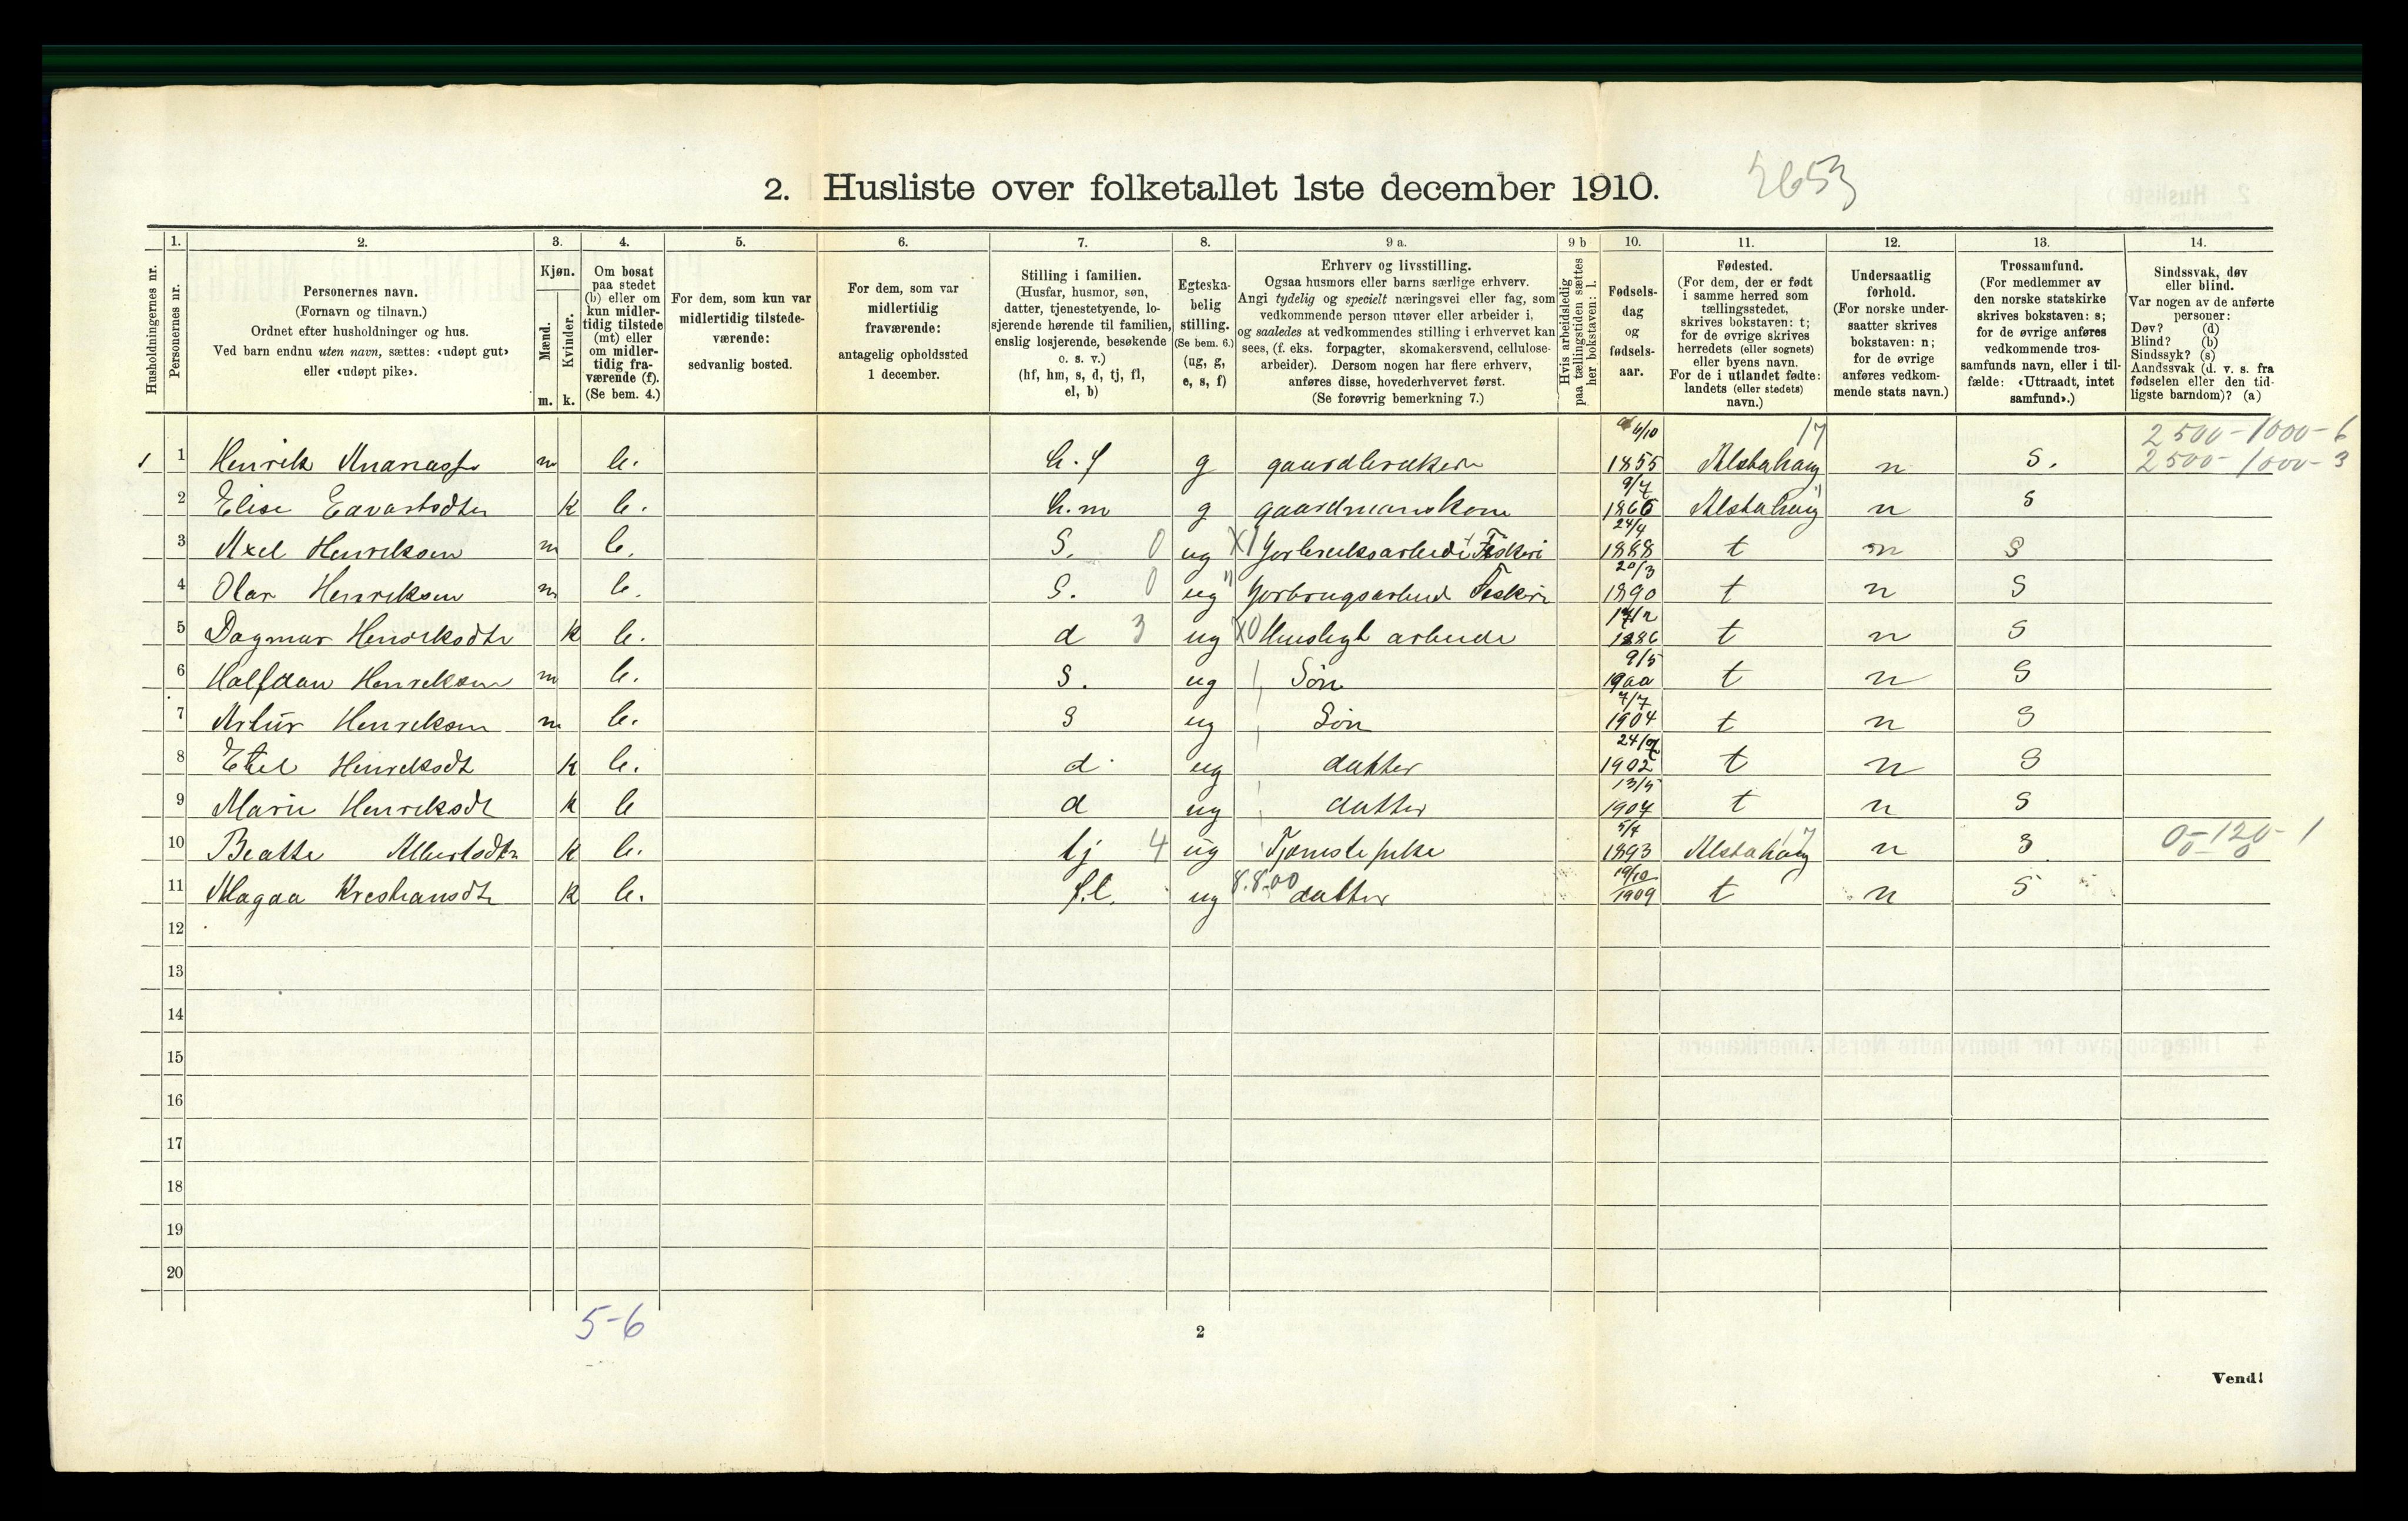 2. Husliste over folketallet 1ste december 1910.
2653
Husholdningernes nr.
1.
Personernes nr.
2.
Personernes navn.
(Fornavn og tilnavn.)
Ordnet efter husholdninger og hus.
Ved barn endnu uten navn, sættes: «udøpt gut»
eller «udøpt pike».
3.
Kjøn.
Mænd.
Kvinder.
m. k.
4.
Om bosat
paa stedet
(b) eller om
kun midler-
tidig tilstede
(mt) eller
om midler-
tidig fra-
værende (f).
(Se bem. 4.)
5.
For dem, som kun var
midlertidig tilstede-
værende:
sedvanlig bosted.
6.
For dem, som var
midlertidig
fraværende:
antagelig opholdssted
1 december.
7.
Stilling i familien.
(Husfar, husmor, søn,
datter, tjenestetyende, lo-
sjerende hørende til familien,
enslig losjerende, besøkende
o. s. v.)
(hf, hm, s, d, tj, fl,
el, b)
8.
Egteska-
belig
stilling.
(Se bem. 6.)
(ug, g,
e, s, f)
9 a.
Erhverv og livsstilling.
Ogsaa husmors eller barns særlige erhverv.
Angi tydelig og specielt næringsvei eller fag, som
vedkommende person utøver eller arbeider i,
og saaledes at vedkommendes stilling i erhvervet kan
sees, (f. eks. forpagter, skomakersvend, cellulose-
arbeider). Dersom nogen har flere erhverv,
anføres disse, hovederhvervet først.
(Se forøvrig bemerkning 7.)
9 b
Hvis arbeidsledig
paa tællingstiden sættes
her bokstaven: l.
10.
Fødsels-
dag
og
fødsels-
aar.
11.
Fødested.
(For dem, der er født
i samme herred som
tællingsstedet,
skrives bokstaven: t;
for de øvrige skrives
herredets (eller sognets)
eller byens navn.
For de i utlandet fødte:
landets (eller stedets)
navn.)
12.
Undersaatlig
forhold.
(For norske under-
saatter skrives
bokstaven: n;
for de øvrige
anføres vedkom-
mende stats navn.)
13.
Trossamfund.
(For medlemmer av
den norske statskirke
skrives bokstaven: s;
for de øvrige anføres
vedkommende tros-
samfunds navn, eller i til-
fælde: «Uttraadt, intet
samfund».)
14.
Sindssvak, døv
eller blind.
Var nogen av de anførte
personer:
Døv? (d)
Blind? (b)
Sindssyk? (s)
Aandssvak (d. v. s. fra
fødselen eller den tid-
ligste barndom)? (a)
2500-1000-6
1 1 Henrik m b. h.f g gaardbruker 6/10 1855 Alstahaug 17 n S. 2500-1000-3
2 Elise k b. h.m g gaardmanskone 9/7 1866 Alstahaug n S
3 Axel Henriksen m b. S. 0 ug Jorbruksarbeid Fiskeri 24/4 1888 t n S
4 Olav Henriksen m b. S. 0 ug Jorbrugsarbeid Fiskeri 20/3 1890 t n S
5 Dagmar Henriksdtr k b. d 3 ug Husligt arbeide 1886 t n S
6 Halfdan Henriksen m b. S. ug Søn 9/5 1900 t n S
7 Artur Henriksen m b. S ug Søn 7/7 1904 t n S
8 Etel Henriksdt k b. d ug datter 1902 t n S
9 Marie Henriksdt k b d ug datter 13/5 1907 t n S
10 Beatte Albertsdtr k b. tj 4 ug Tjeneste pike 5/7 1893 Alstahaug 17 n S 0-120-1
11 Magda Kristiansdt k b. f.l. ug 8.8.00 datter 19/10 1909 t n S
12
13
14
15
16
17
18
19
20
5-6
2
Vend!